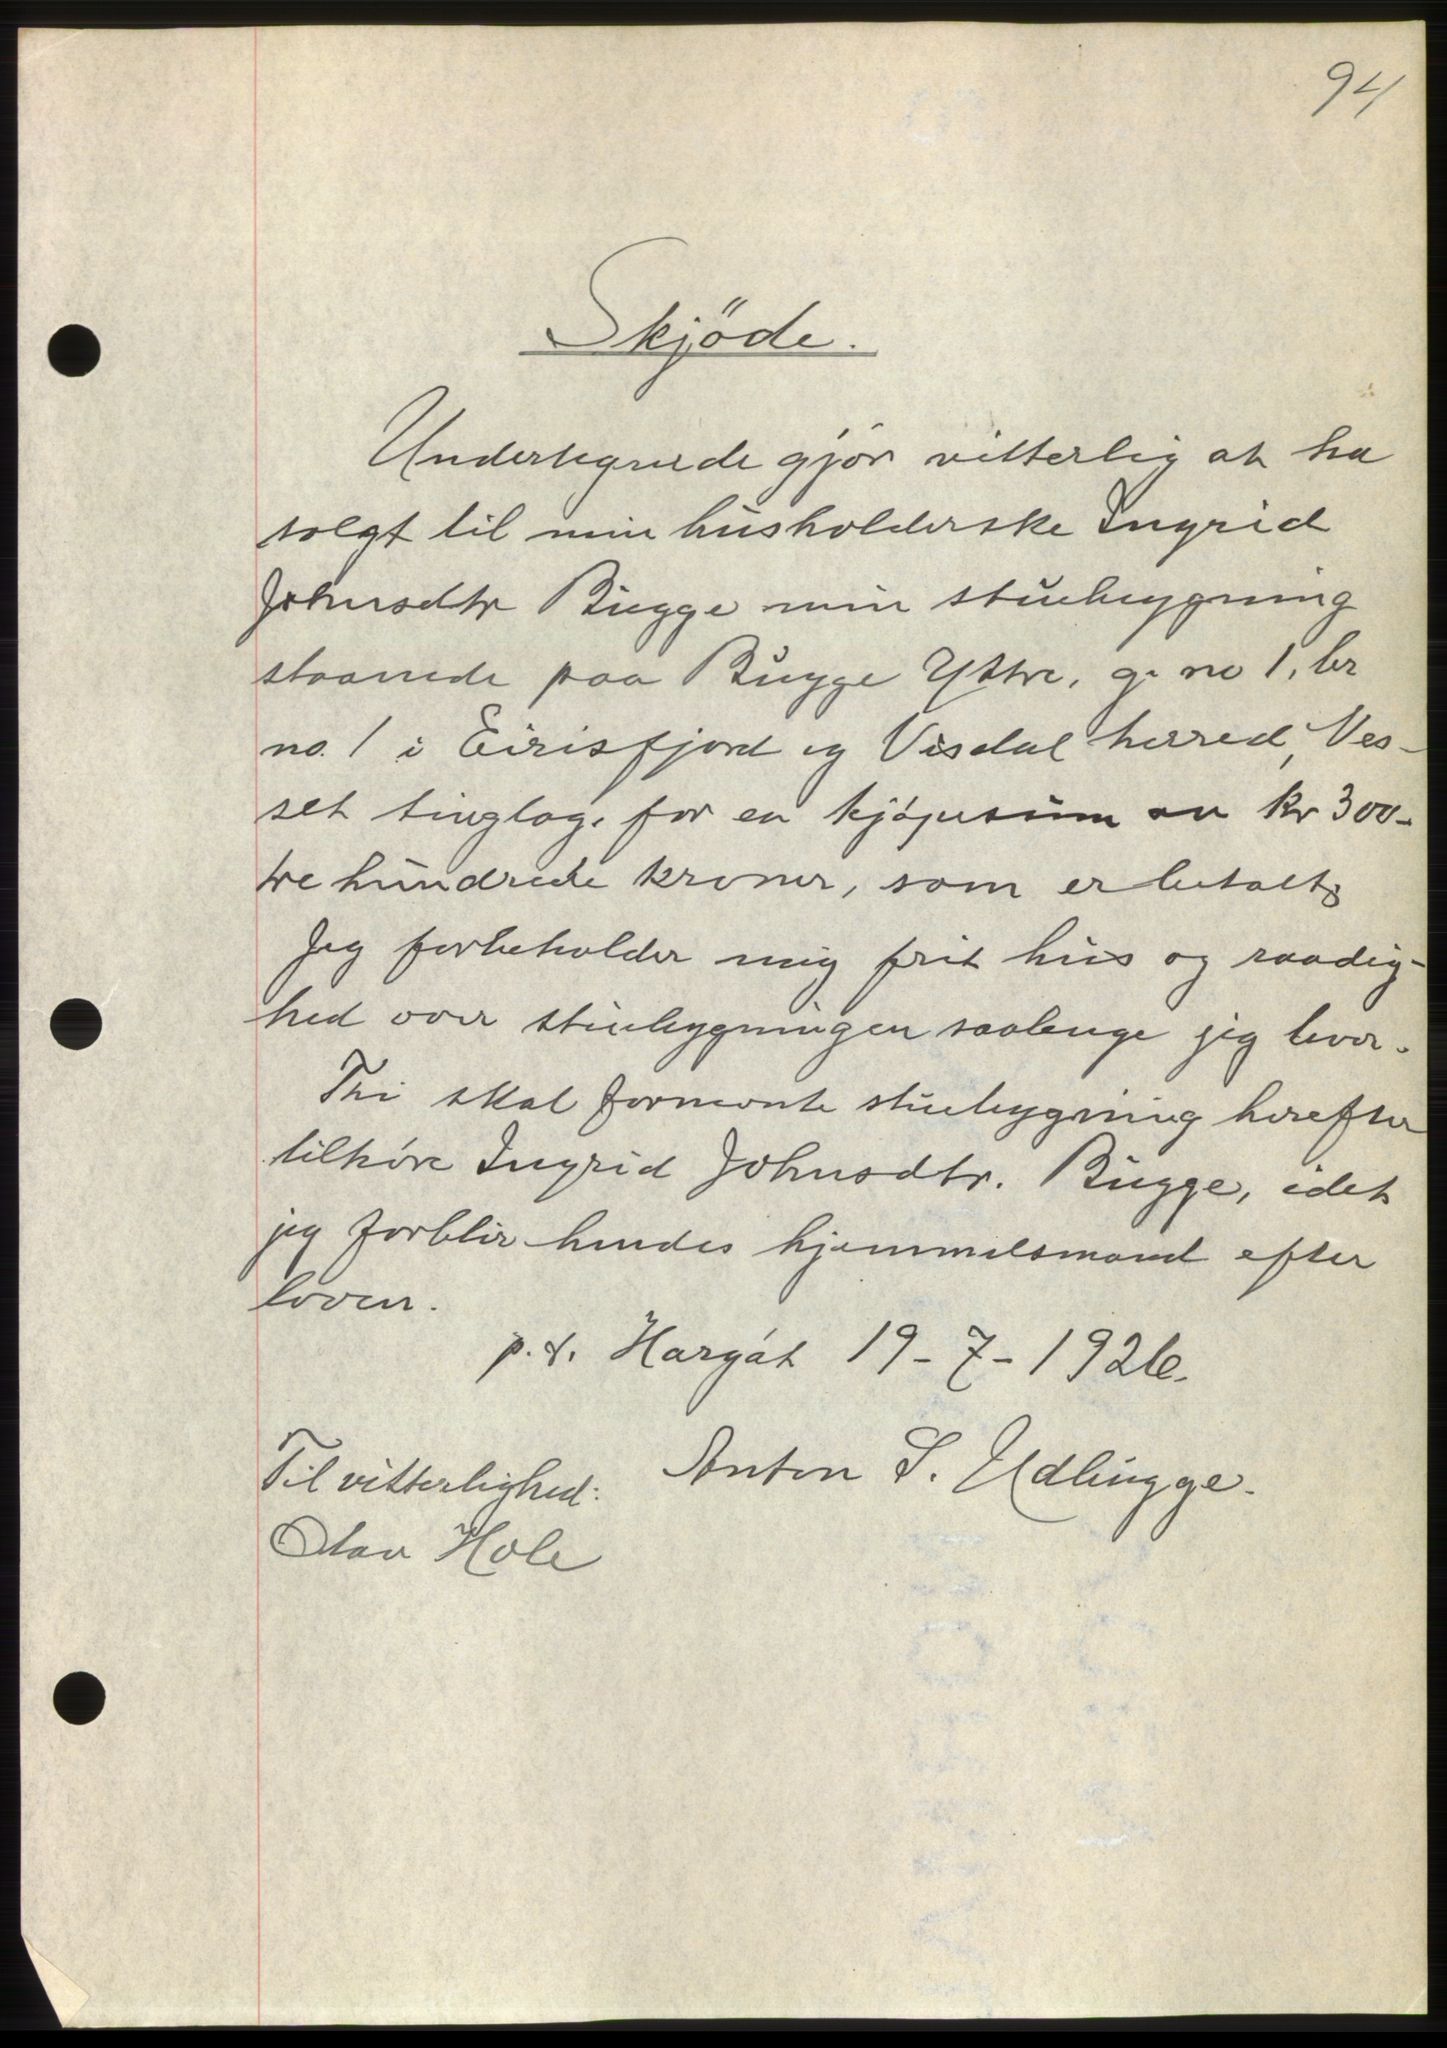 94
Skjöde.
Undertegnede gjör vitterlig at ha
solgt til min husholderske Ingrid
Johnsdtr Bugge min stuebygning
staaende paa Bugge Ystre, g. no 1, br
no. 1 i Eirisfjord og Visdal herred, Nes-
set tinglag, for en kjöpesum av Kr 300-
tre hundrede kroner, som er betalt.
Jeg forbeholder mig frit hus og raadig-
hed over stuebygningen saalenge jeg lever.
Thi skal formente stuebygning herefter
tilhöre Ingrid Johnsdtr. Bugge, idet
jeg forblir hendes hjemmelsmand efter
loven.
p.t. Hargöt 19-7-1926.
Til vitterlighed: Anton S. Udbugge.
Olav Hole